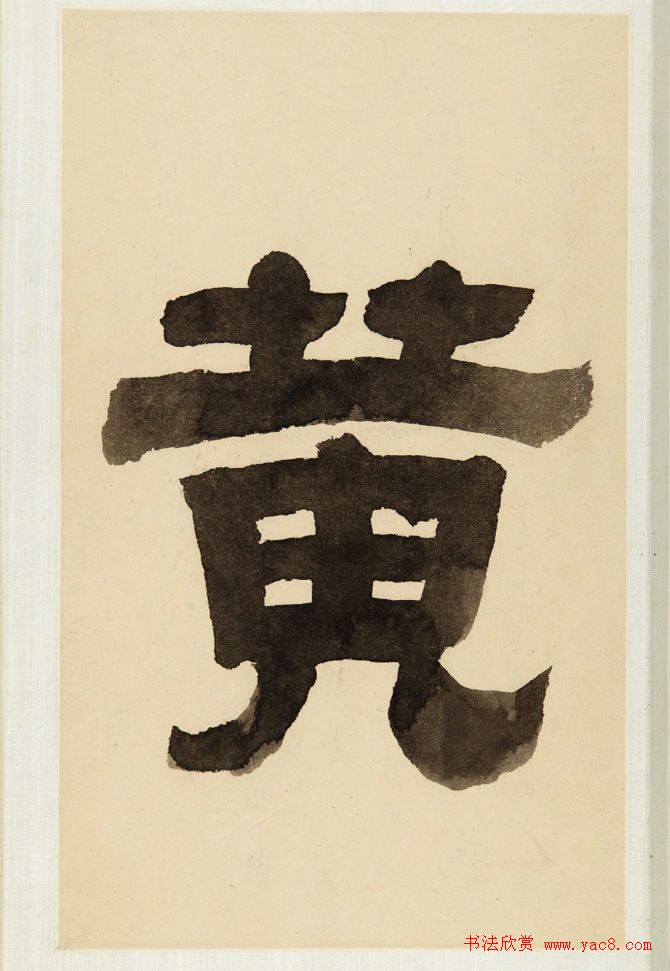 黄
书法欣赏 www.yac8.com